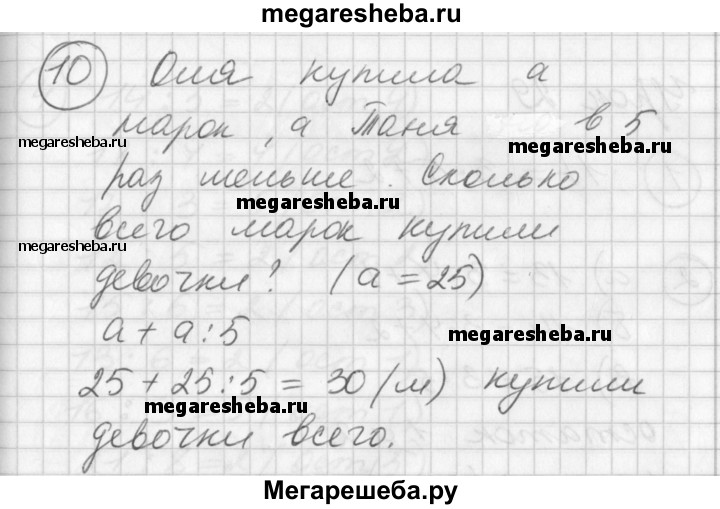 megaresheba.ru
10 Оля купила а
megaresheba.ru
марок, а Таня в 5
megaresheba.ru
раз меньше. Сколько
megaresheba.ru
всего марок купили
megaresheba.ru
девочки? (а = 25)
а + а : 5
megaresheba.ru
25 + 25 : 5 = 30 (м) купили
megaresheba.ru
девочки всего.
Мегарешеба.ру